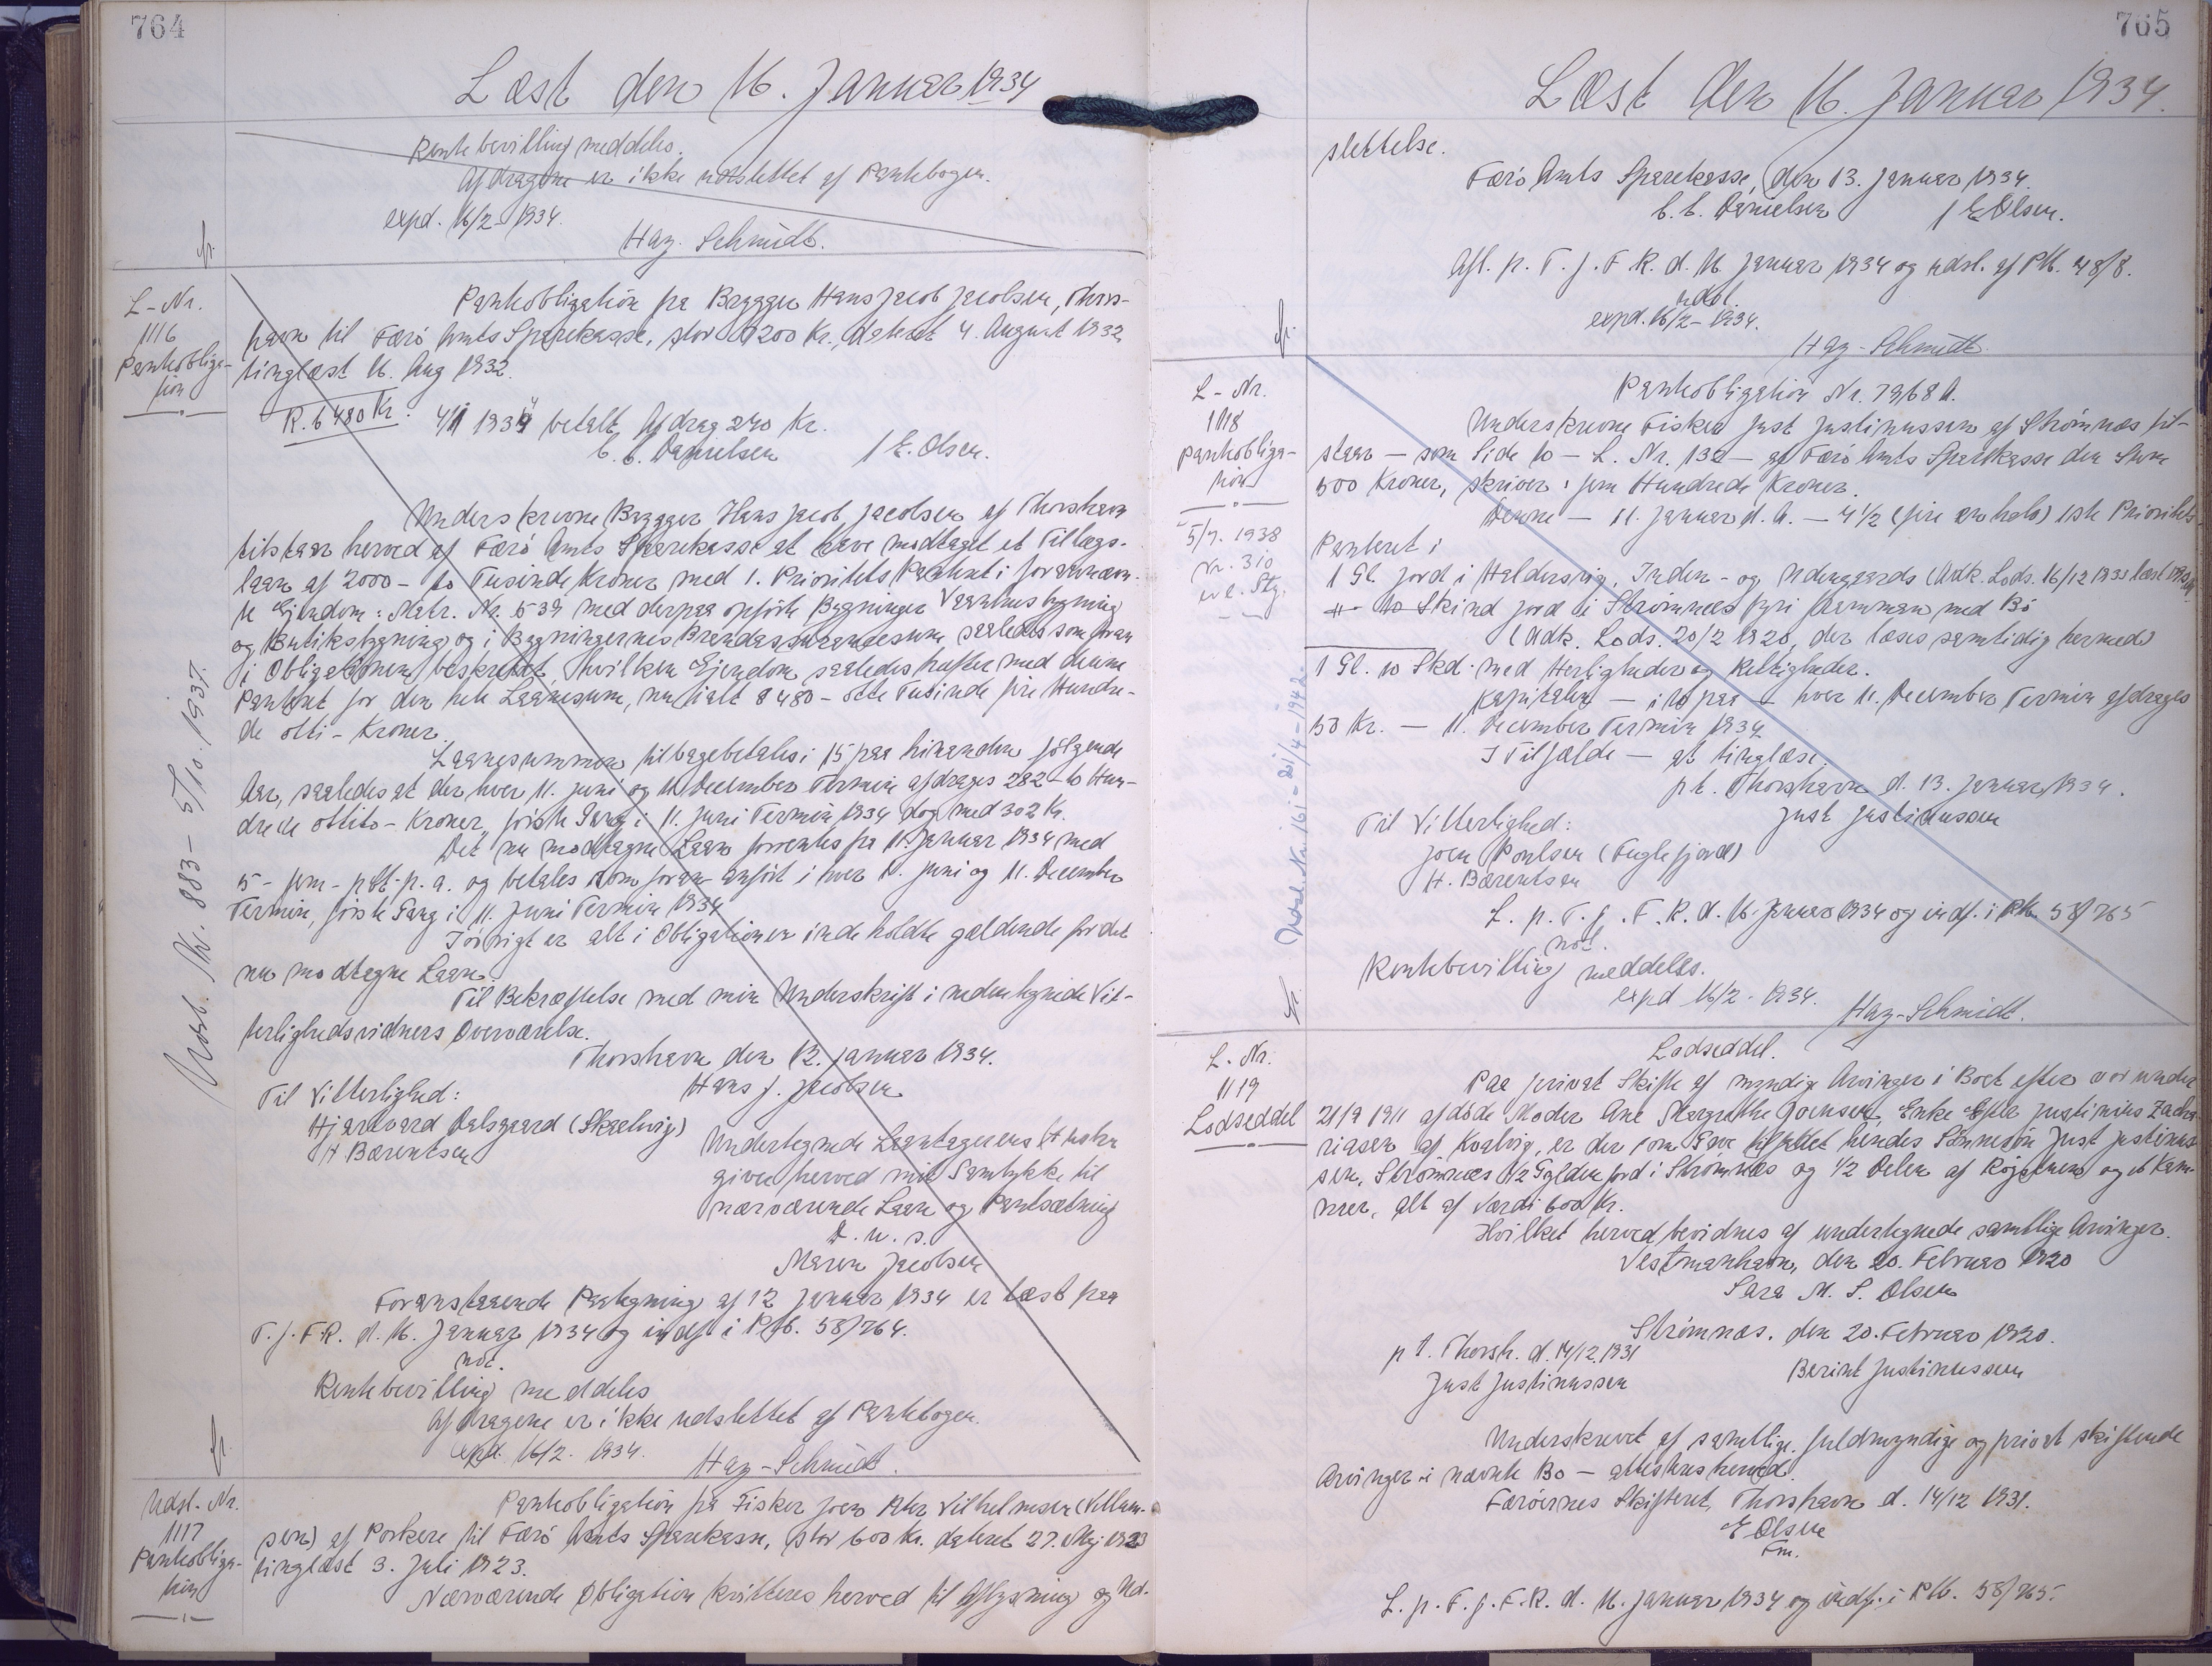 764
Læst den 16. Januar 1934
Rentebevilling meddeles.
Afdragene er ikke udslettet af Pantebogen.
expd. 16/2 - 1934.
Hay-Schmidt.
fr.
L-Nr.
1116
Pantobliga-
tion
Pantobligation fra Brygger Hans Jacob Jacobsen, Thors-
havn til Færø Amts Sparekasse, stor 7200 Kr., dateret 4. August 1932,
tinglæst 16. Aug 1932.
R. 6480 Kr.
4/1 1934 betalt Afdrag 240 Kr.
C. C. Danielsen / E. Olsen.
Underskrevne Brygger Hans Jacob Jacobsen af Thorshavn
tilstaar herved af Færø Amts Sparekasse at have modtaget et Tillægs-
laan af 2000 - to Tusinde Kroner med 1. Prioritets Panteret i forannævn-
te Ejendom: Matr. Nr. 539 med derpaa opførte Bygninger Vaanhusbygning
og Butiksbygning og i Bygningernes Brandassurancesum saaledes som foran
i Obligationen beskrevet, hvilken Ejendom saaledes hæfter med denne
Panteret for den hele Laanesum, nu ialt 8480 - otte Tusinde fire Hundre-
de otti - Kroner.
Laanesummen tilbagebetales i 15 paa hinanden følgende
Aar, saaledes at der hver 11. Juni og 11. December Termin afdrages 282 - to Hun-
drede ottito - Kroner, første Gang i 11. Juni Termin 1934 dog med 302 Kr.
Det nu modtagne Laan forrentes fra 11. Januar 1934 med
5 - fem - pCt. p. a. og betales som foran anført i hver 11. Juni og 11. December
Termin, første Gang i 11. Juni Termin 1934
Iøvrigt er alt i Obligationen indeholdte gældende for det
nu modtagne Laan.
Til Bekræftelse med min Underskrift i undertegnede Vit-
terlighedsvidners Overværelse.
Thorshavn den 12. Januar 1934.
Hans J. Jacobsen
Til Vitterlighed:
Hjartvard Dalsgaard (Skaalvig)
H Bærentsen
Undertegnede Laantagerens Hustru
giver herved mit Samtykke til
nærværende Laan og Pantsætning
D. u. s.
Maren Jacobsen
Foranstaaende Paategning af 12 Januar 1934 er læst paa
T. f. F. R. d. 16. Januar 1934 og indf. i Ptb. 58/764.
not.
Rentebevilling meddeles
Afdragene er ikke udslettet af Pantebogen.
expd. 16/2. 1934.
Hay-Schmidt.
fr.
Udsl. Nr. 883 - 5/10. 1937.
Udsl. Nr.
1117
Pantobliga-
tion
Pantobligation fra Fisker Joen Peter Vilhelmsen (Villum-
sen) af Porkere til Færø Amts Sparekasse, stor 600 Kr. dateret 27. Maj 1923
tinglæst 3. Juli 1923.
Nærværende Obligation kvitteres herved til Aflysning og Ud-
765
Læst den 16. Januar 1934.
slettelse.
Færø Amts Sparekasse, den 13. Januar 1934.
C. C. Danielsen / E Olsen.
Afl. p. T. f. F. R. d. 16. Januar 1934 og udsl. af Ptb. 48/8.
udsl.
expd. 16/2 - 1934.
Hay-Schmidt.
fr.
L-Nr.
1118
Pantobliga-
tion
5/7. 1938
Nr. 310
Pantobligation Nr. 7968 A.
Underskrevne Fisker Just Justinussen af Strømnæs til-
staar - som Side 10 - L. Nr. 132 - af Færø Amts Sparekasse den Sum
500 Kroner, skriver: fem Hundrede Kroner.
Denne - 11. Januar d. A. - 4 1/2 (fire en halv) 1ste Prioritets
Panteret i
1 Gl. Jord i Haldersvig, Inden- og Udengaards (Adk. Lods. 16/12 1933 læst
" - 10 Skind Jord i Strømnæs fyri hamman med Bö
(Adk. Lods. 20/2 1920, der læses samtidig hermed)
1 Gl. 10 Skd. med Herligheder og Rettigheder.
Kapitalen - i 10 paa - hver 11. December Termin afdrages
50 Kr. - 11. December Termin 1934
I Tilfælde - at tinglæse.
p.t. Thorshavn d. 13. Januar 1934.
Just Justinussen
Til Vitterlighed:
Joen Poulsen (Fuglefjord)
H. Bærentsen
L. p. T. f. F. R. d. 16. Januar 1934 og indf. i Ptb. 58/765
not.
Rentebevilling meddeles.
expd 16/2. 1934.
Hay-Schmidt.
fr.
Udsl. Nr. 161 - 21/4 - 1942.
L. Nr.
1119
Lodseddel
Lodseddel.
Paa privat Skifte af myndige Arvinger i Boet efter vor under
21/9 1911 afdøde Moder Ane Margrethe Joensen, Enke efter Justinius Zacha-
riasen af Kvalvig, er der som Gave udlagt hendes Sønnesøn Just Justinus-
sen, Strømnæs 1/2 Gylden Jord i Strømnæs og 1/2 Delen af Røgstuen og et Kam-
mer, alt af Værdi 600 Kr.
Hvilket herved bevidnes af undertegnede samtlige Arvinger.
Vestmanhavn, den 20. Februar 1920
Sara M. S. Olsen
Strømnæs. den 20. Februar 1920.
p t. Thorsh. d. 14/12 1931
Just Justinussen
Berint Justinussen
Underskrevet af samtlige, fuldmyndige og privat skiftende
Arvinger i nævnte Bo - attesteres herved.
Færøernes Skifteret, Thorshavn d. 14/12 1931.
E Olsen
Fm.
L. p. T. f. F. R. d. 16. Januar 1934 og indf. i Ptb. 58/765.